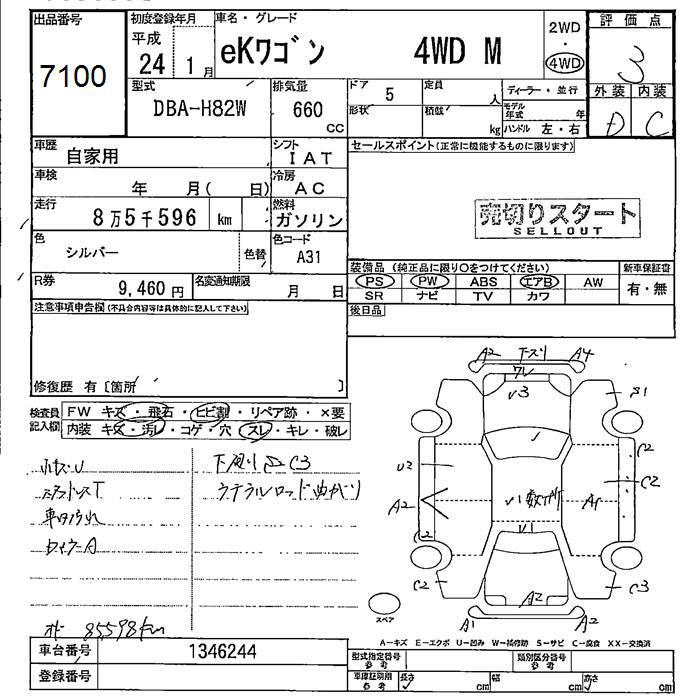 出品番号
7100
初度登録年月
平成
24 1月
車名・グレード
eKワゴン 4WD M
2WD
・
4WD
評価点
3
外装 内装
D C
型式
DBA-H82W
排気量
660
cc
ドア
5
形状
定員
人
積載
kg
ディーラー・並行
モデル年式 年
ハンドル 左・右
車歴
自家用
シフト
IAT
セールスポイント(正常に機能するものに限ります)
車検
年 月( 日)
冷房
AC
走行
8万5千596 km
燃料
ガソリン
売切りスタート
SELLOUT
色
シルバー
色替
色コード
A31
装備品 (純正品に限り○をつけてください)
新車保証書
PS PW ABS エアB AW
有・無
SR ナビ TV カワ
R券
9,460 円
名変通知期限
月 日
後日品
注意事項申告欄(不具合内容等は具体的に記入して下さい)
修復歴 有〔箇所 〕
検査員記入欄
FW キズ・飛石・ヒビ割・リペア跡・×要
内装 キズ・汚レ・コゲ・穴・スレ・キレ・破レ
小キズU
下廻りS C3
A2 下スリ A4
ワレ
U3
S1
C2
U2
C2
A2
U1
A1
C2
U1
C2
A2
C3
A1
A2
スペア
オド 85598km
A-キズ E-エクボ U-凹み W-補修跡 S-サビ C-腐食 XX-交換済
車台番号
1346244
型式指定番号
参考
類別区分番号
参考
登録番号
車庫証明用
参考
長さ
cm
幅
cm
高さ
cm